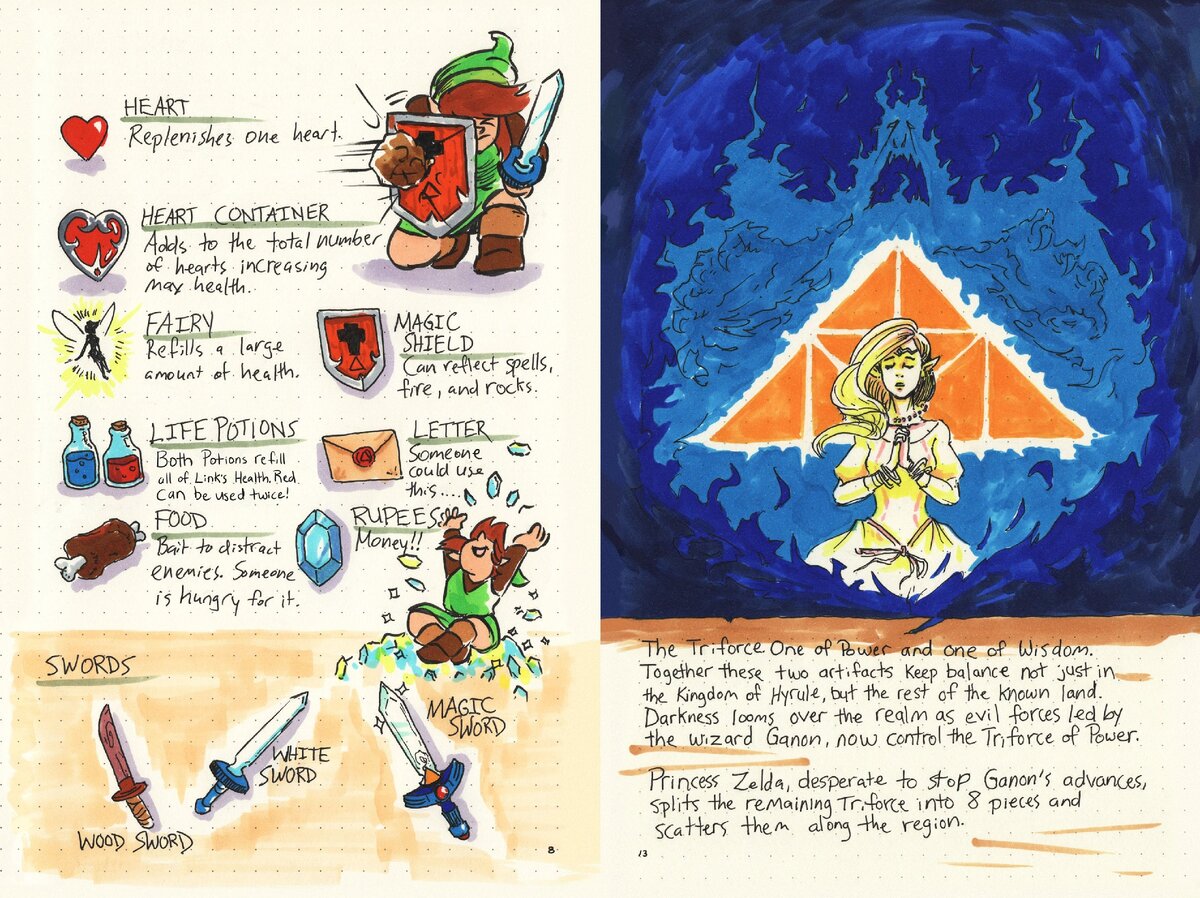 HEART
Replenishes one heart.
HEART CONTAINER
Adds to the total number
of hearts increasing
max health.
FAIRY
Refills a large
amount of health.
MAGIC
SHIELD
Can reflect spells,
fire, and rocks.
LIFE POTIONS
Both Potions refill
all of Link's Health. Red
can be used twice!
LETTER
Someone
could use
this....
FOOD
Bait to distract
enemies. Someone
is hungry for it.
RUPEES
Money!!
SWORDS
WOOD SWORD
WHITE
SWORD
MAGIC
SWORD
8
The Triforce. One of Power and one of Wisdom.
Together these two artifacts keep balance not just in
the Kingdom of Hyrule, but the rest of the known land.
Darkness looms over the realm as evil forces led by
the wizard Ganon, now control the Triforce of Power.
Princess Zelda, desperate to stop Ganon's advances,
splits the remaining Triforce into 8 pieces and
scatters them along the region.
13